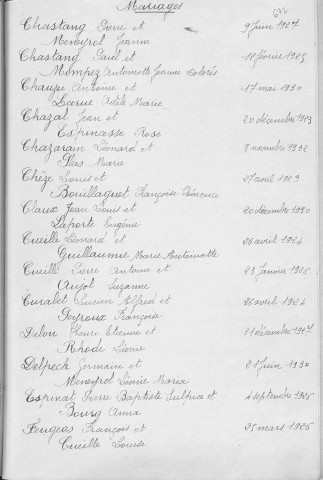 Mariages
Chastang Pierre et 9 Juin 1927
Meneyrol Jeanne
Chastang Paul et 18 février 1925
Mompez Antoinette Jeanne Dolorès
Chauze Antoine et 17 mai 1930
Larue Adèle Marie
Chazal Jean et 20 décembre 1923
Espinasse Rose
Chazarain Léonard et 8 novembre 1932
Mas Marie
Chèze Louis et 27 avril 1929
Bouillaguet Françoise
Claux Jean Louis et 20 décembre 1930
Laporte Eugénie
Cueille Léonard et 26 avril 1924
Guillaumie Marie Antoinette
Cueille Pierre Antoine et 23 Janvier 1926
Aujol Suzanne
Curabet Lucien Alfred et 26 avril 1924
Peyroux Françoise
Delon Henri Etienne et 31 décembre 1927
Rhode Léonie
Delpech Germain et 21 Juin 1930
Meneyrol Léonie Maria
Espinat Pierre Baptiste Sulpice et 4 septembre 1926
Bourg Anna
Feugeas François et 25 mars 1926
Cueille Louise